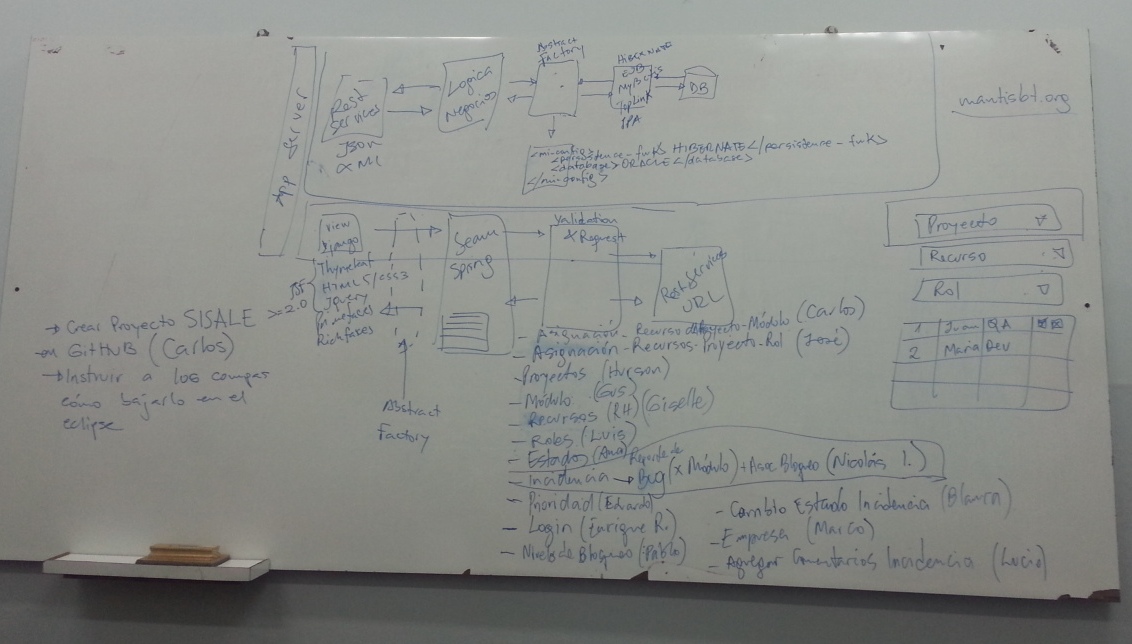 App Server
Rest
Services
Json
XML
Logica
Negocios
Abstract
Factory
HIBERNATE
EJB
MyBatis
TopLink
JPA
DB
<mi-config>
<persistence-fwk> HIBERNATE </persistence-fwk>
<database> ORACLE </database>
</mi-config>
mantisbt.org
View
Django
HTML5/CSS3
JQuery
JSF
>=2.0
Richfaces
Abstract
Factory
Seam
Spring
Validation
Request
Rest Services
URL
Proyecto
Recurso
Rol
1 Juan QA
2 Maria Dev
→ Crear Proyecto SISALE
en GitHUB (Carlos)
→ Instruir a los compas
cómo bajarlo en el
eclipse
- Asignación - Recurso Proyecto - Módulo (Carlos)
- Asignación - Recursos - Proyecto - Rol (José)
- Proyectos
- Módulo (Gus)
- Recursos (RH) (Giselle)
- Roles (Luis)
- Estados (Ana)
- Incidencia → Reporte de Bug (x Módulo) + Asoc Bloqueo (Nicolás I.)
- Prioridad (Eduardo)
- Login (Enrique R.)
- Niveles de Bloqueo (Pablo)
- Cambio Estado Incidencia (Blanca)
- Empresa (Marco)
- Agregar Comentarios Incidencia (Lucio)